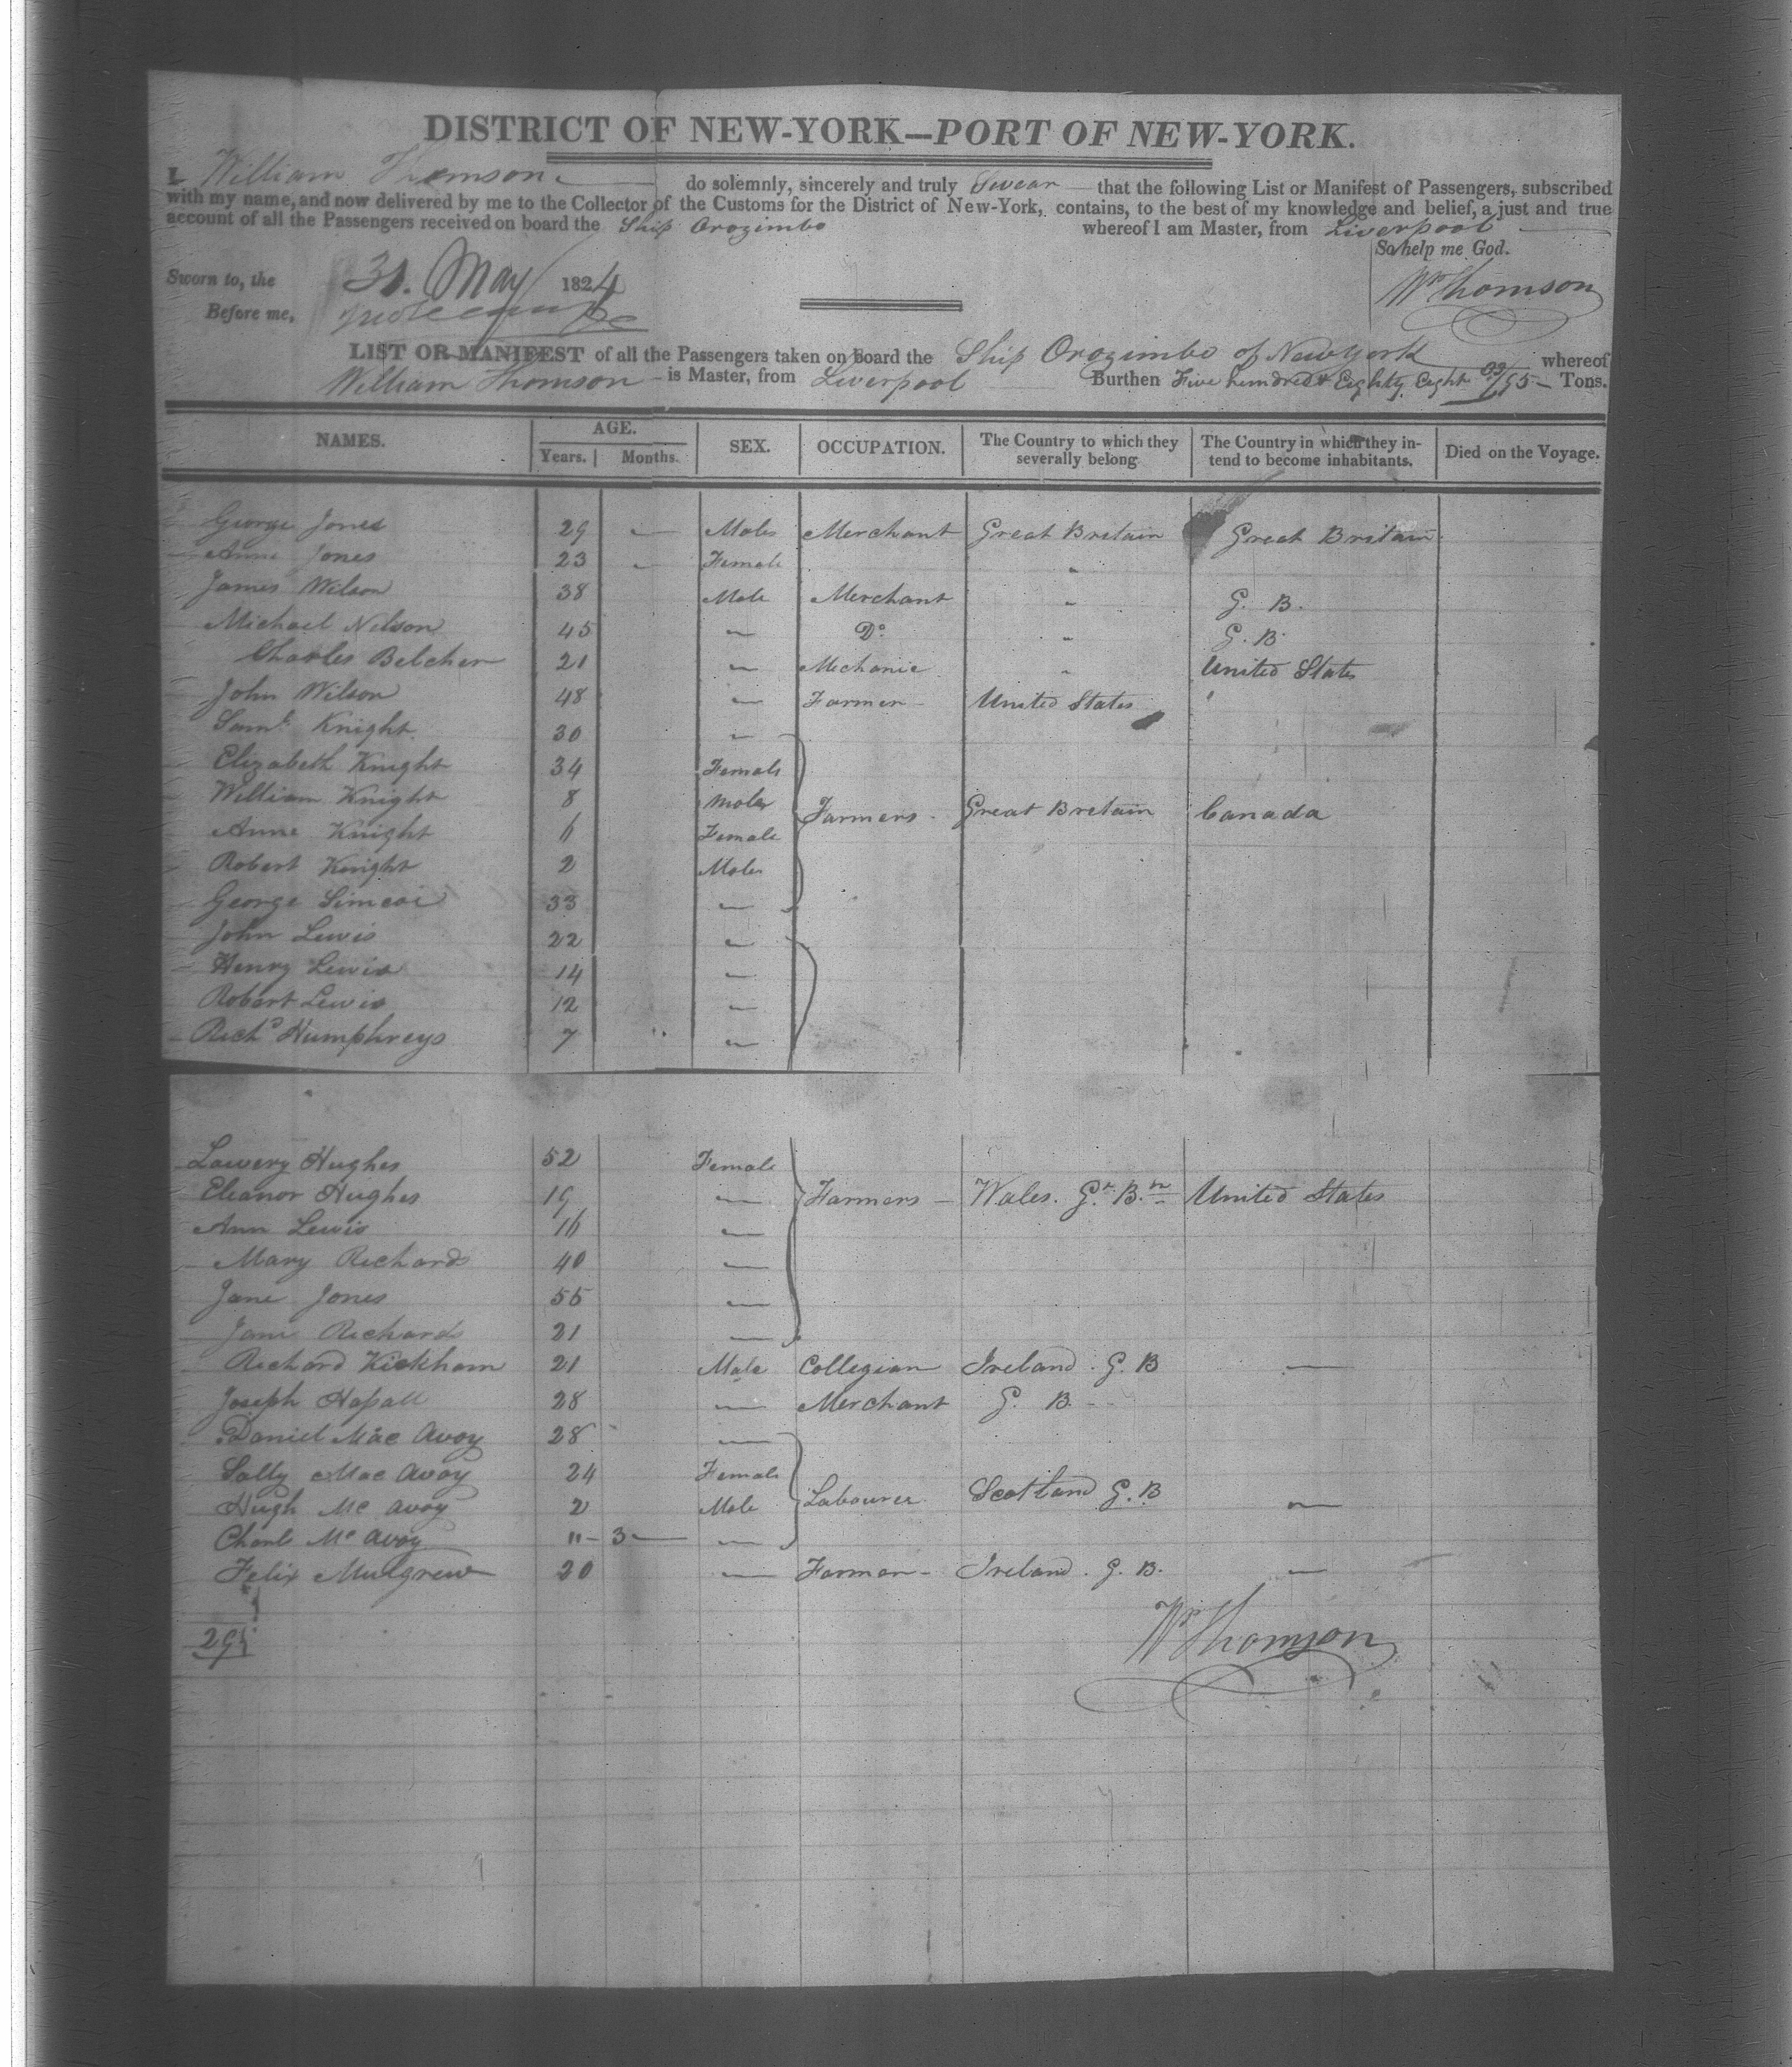 DISTRICT OF NEW-YORK—PORT OF NEW-YORK.
I William Thomson do solemnly, sincerely and truly Swear that the following List or Manifest of Passengers, subscribed
with my name, and now delivered by me to the Collector of the Customs for the District of New-York, contains, to the best of my knowledge and belief, a just and true
account of all the Passengers received on board the Ship Orozimbo whereof I am Master, from Liverpool
So help me God.
Sworn to, the 31. May 1824 Wm Thomson
Before me,
LIST OR MANIFEST of all the Passengers taken on board the Ship Orozimbo of New York whereof
William Thomson is Master, from Liverpool Burthen Five hundred & Eighty Eight /95 Tons.
NAMES. AGE. Years. Months. SEX. OCCUPATION. The Country to which they severally belong The Country in which they intend to become inhabitants. Died on the Voyage.
George Jones 29 — Male Merchant Great Britain Great Britain
Anne Jones 23 — Female "
James Wilson 38 Male Merchant " G. B.
Michael Nelson 45 — Do " G. B.
Charles Belcher 21 — Mechanic " United States
John Wilson 48 — Farmer United States "
Saml Knight 30 —
Elizabeth Knight 34 Female
William Knight 8 Male Farmers Great Britain Canada
Anne Knight 6 Female
Robert Knight 2 Male
George Simcoi 33 —
John Lewis 22 —
Henry Lewis 14 —
Robert Lewis 12 —
Richd Humphreys 7 —
Lowery Hughes 52 Female
Eleanor Hughes 19 — Farmers — Wales. Gt. Bn United States
Ann Lewis 16 —
Mary Richards 40 —
Jane Jones 55 —
Jane Richards 21 —
Richard Kickham 21 Male Collegian Ireland. G. B —
Joseph Hassall 28 — Merchant G. B.
Daniel Mac Avoy 28 —
Sally Mac Avoy 24 Female
Hugh Mc Avoy 2 Male Labourer Scotland G. B —
Charl Mc Avoy "- 3 — —
Felix Mulgrew 20 — Farmer — Ireland. G. B. —
Wm Thomson